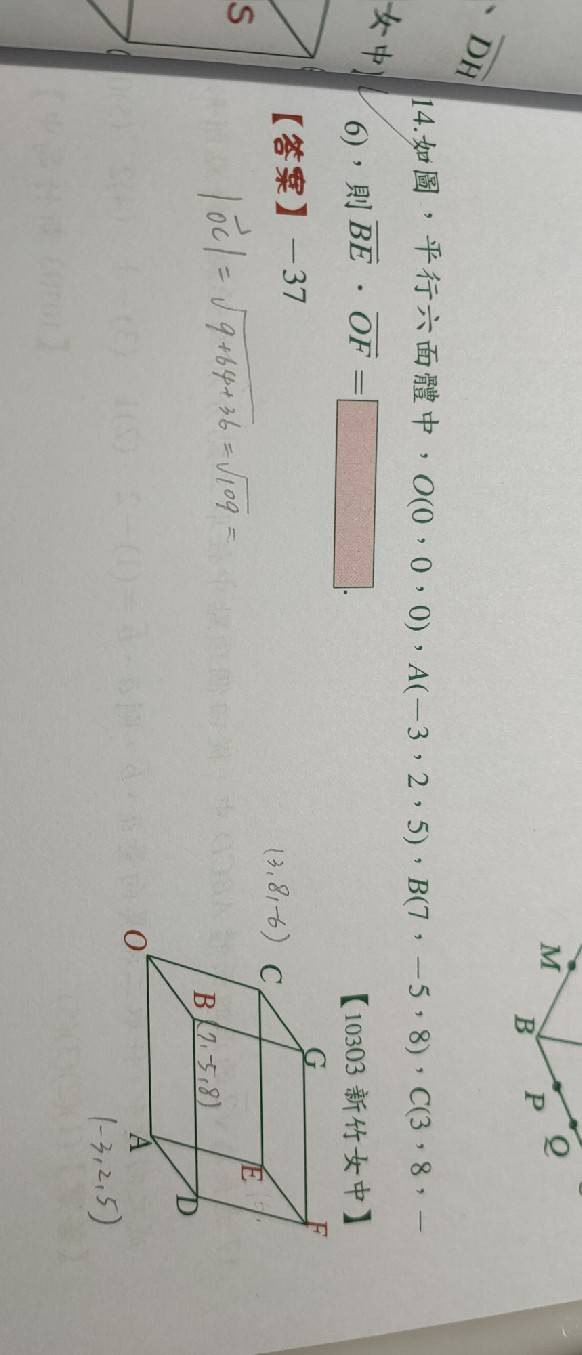 、DH
女中】
S
14.如圖，平行六面體中，O(0，0，0)，A(－3，2，5)，B(7，－5，8)，C(3，8，－
6)，則BE．OF＝
.
【10303 新竹女中】
【答案】－37
|OC| = √9+64+36 = √109 =
(3,8,-6)
C
G
O
B
(7,-5,8)
E
F
A
D
(-3,2,5)
M
B
P
Q